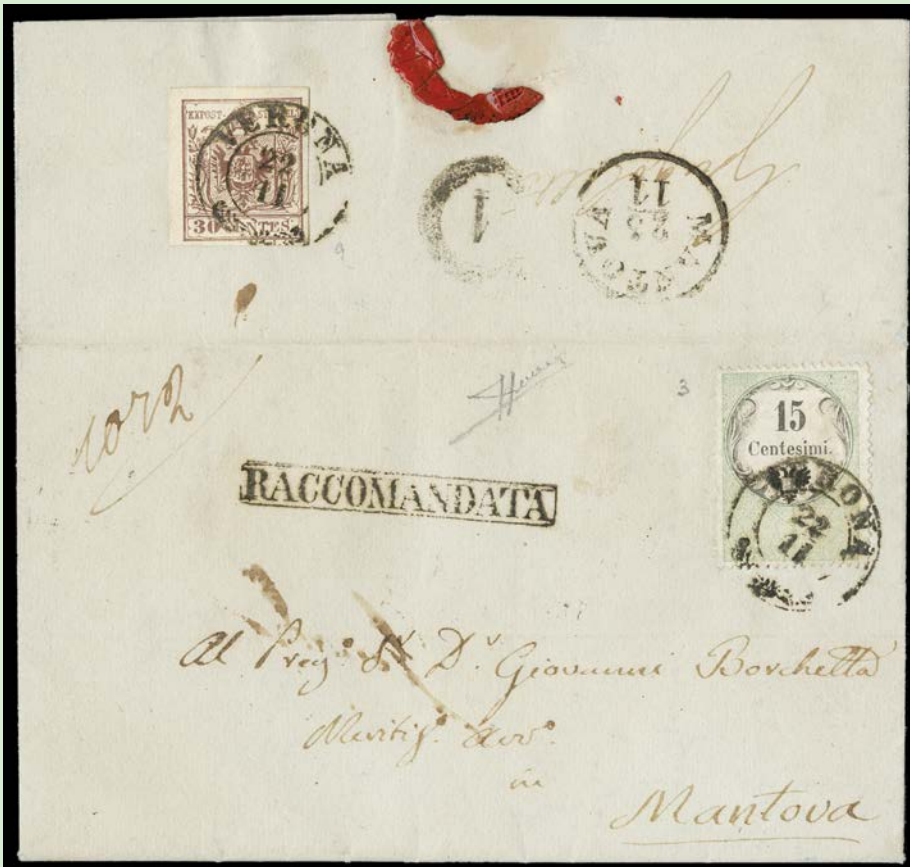 VERONA
22
11
30 CENTES
1
MANTOVA
23
11
3
15
Centesimi.
VERONA
22
11
RACCOMANDATA
Al Preg.º Sr. Dr. Giovanni Borchetta
Avv.º
in
Mantova